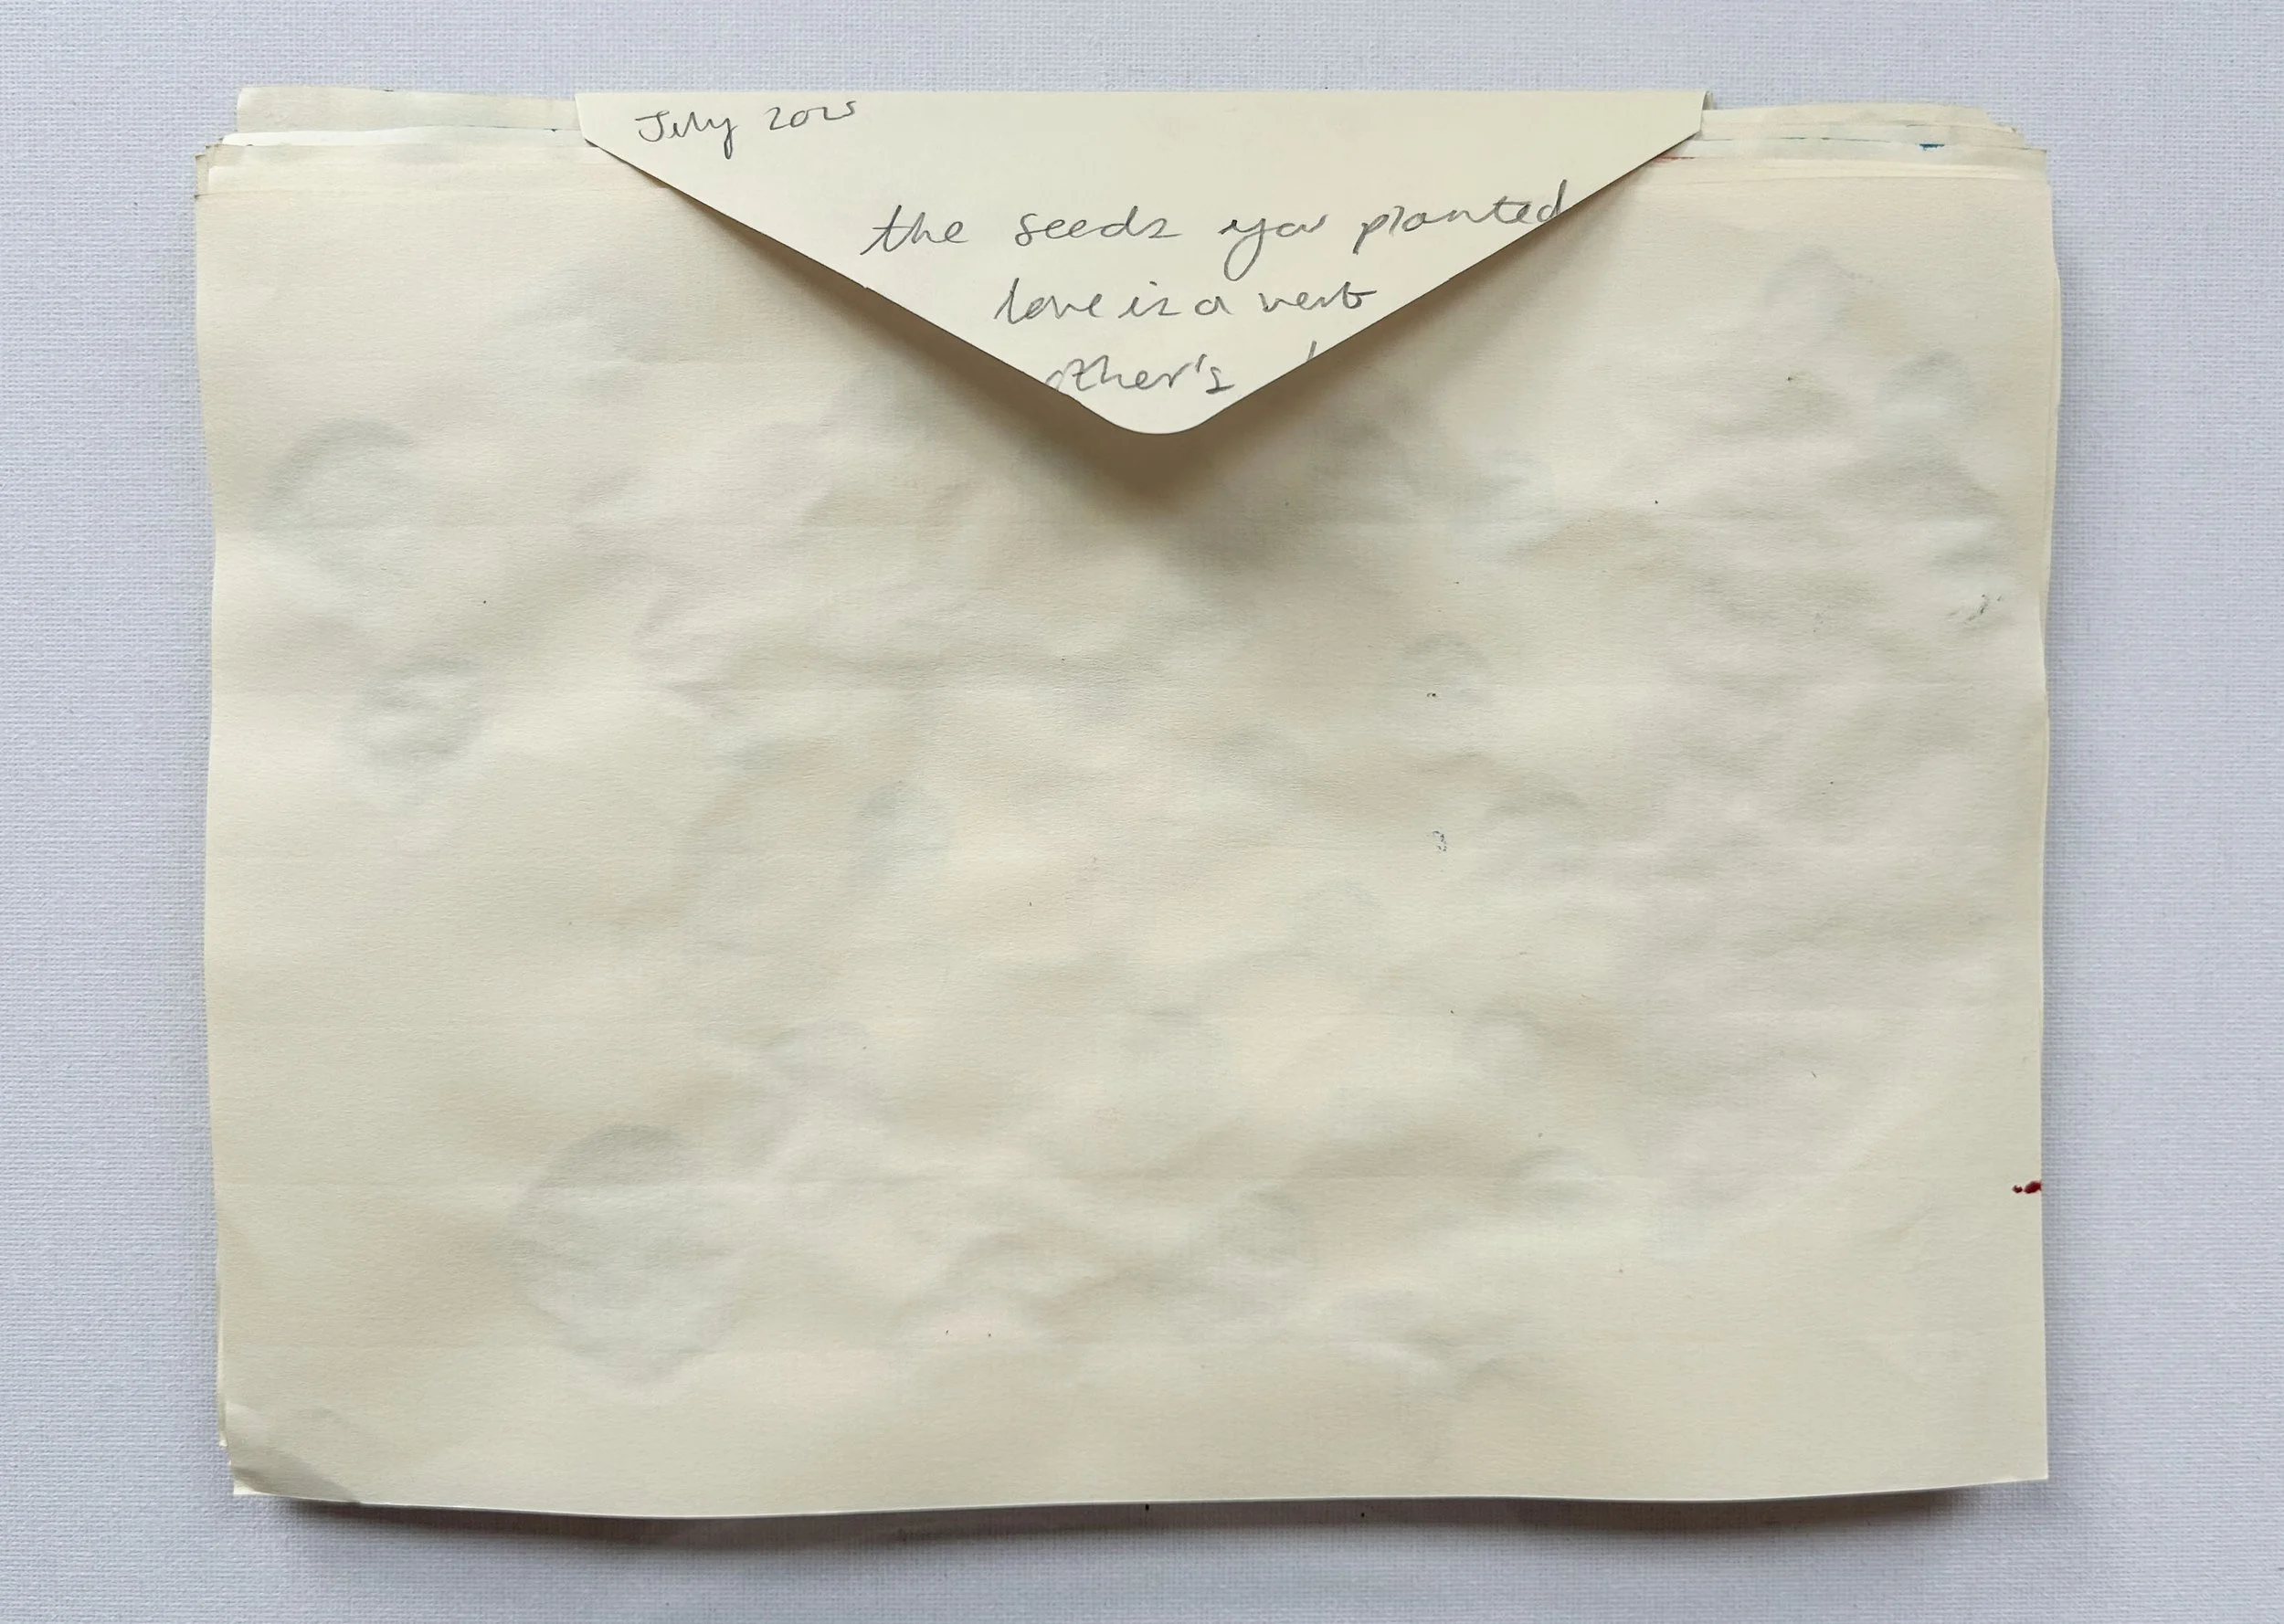 July 2025
the seeds you planted
love is a verb
other's